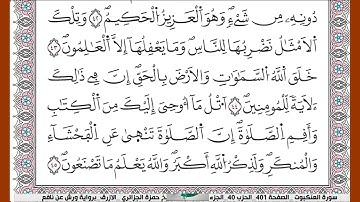 دُونِهِۦ مِن شَےْءٖ وَهُوَ اَ۬لْعَزِيزُ اُ۬لْحَكِيمُۖ ٤٢ وَتِلْكَ
اَ۬لَامْثَٰلُ نَضْرِبُهَا لِلنَّاسِ وَمَا يَعْقِلُهَا إِلَّا اَ۬لْعَٰلِمُونَۖ ٤٣
خَلَقَ اَ۬للَّهُ اُ۬لسَّمَٰوَٰتِ وَالَارْضَ بِالْحَقِّ إِنَّ فِے ذَٰلِكَ
ءَلَايَةٗ لِّلْمُومِنِينَۖ ٤٤ اَ۟تْلُ مَا أُوحِيَ إِلَيْكَ مِنَ اَ۬لْكِتَٰبِ
وَأَقِمِ اِ۬لصَّلَوٰةَ إِنَّ اَ۬لصَّلَوٰةَ تَنْهَىٰ عَنِ اِ۬لْفَحْشَآءِ
وَالْمُنكَرِ وَلَذِكْرُ اُ۬للَّهِ أَكْبَرُ وَاللَّهُ يَعْلَمُ مَا تَصْنَعُونَۖ ٤٥
سورة العنكبوت . الصفحة 401 الحزب 40 الجزء خ حمزة الجزائري . الازرق برواية ورش عن نافع